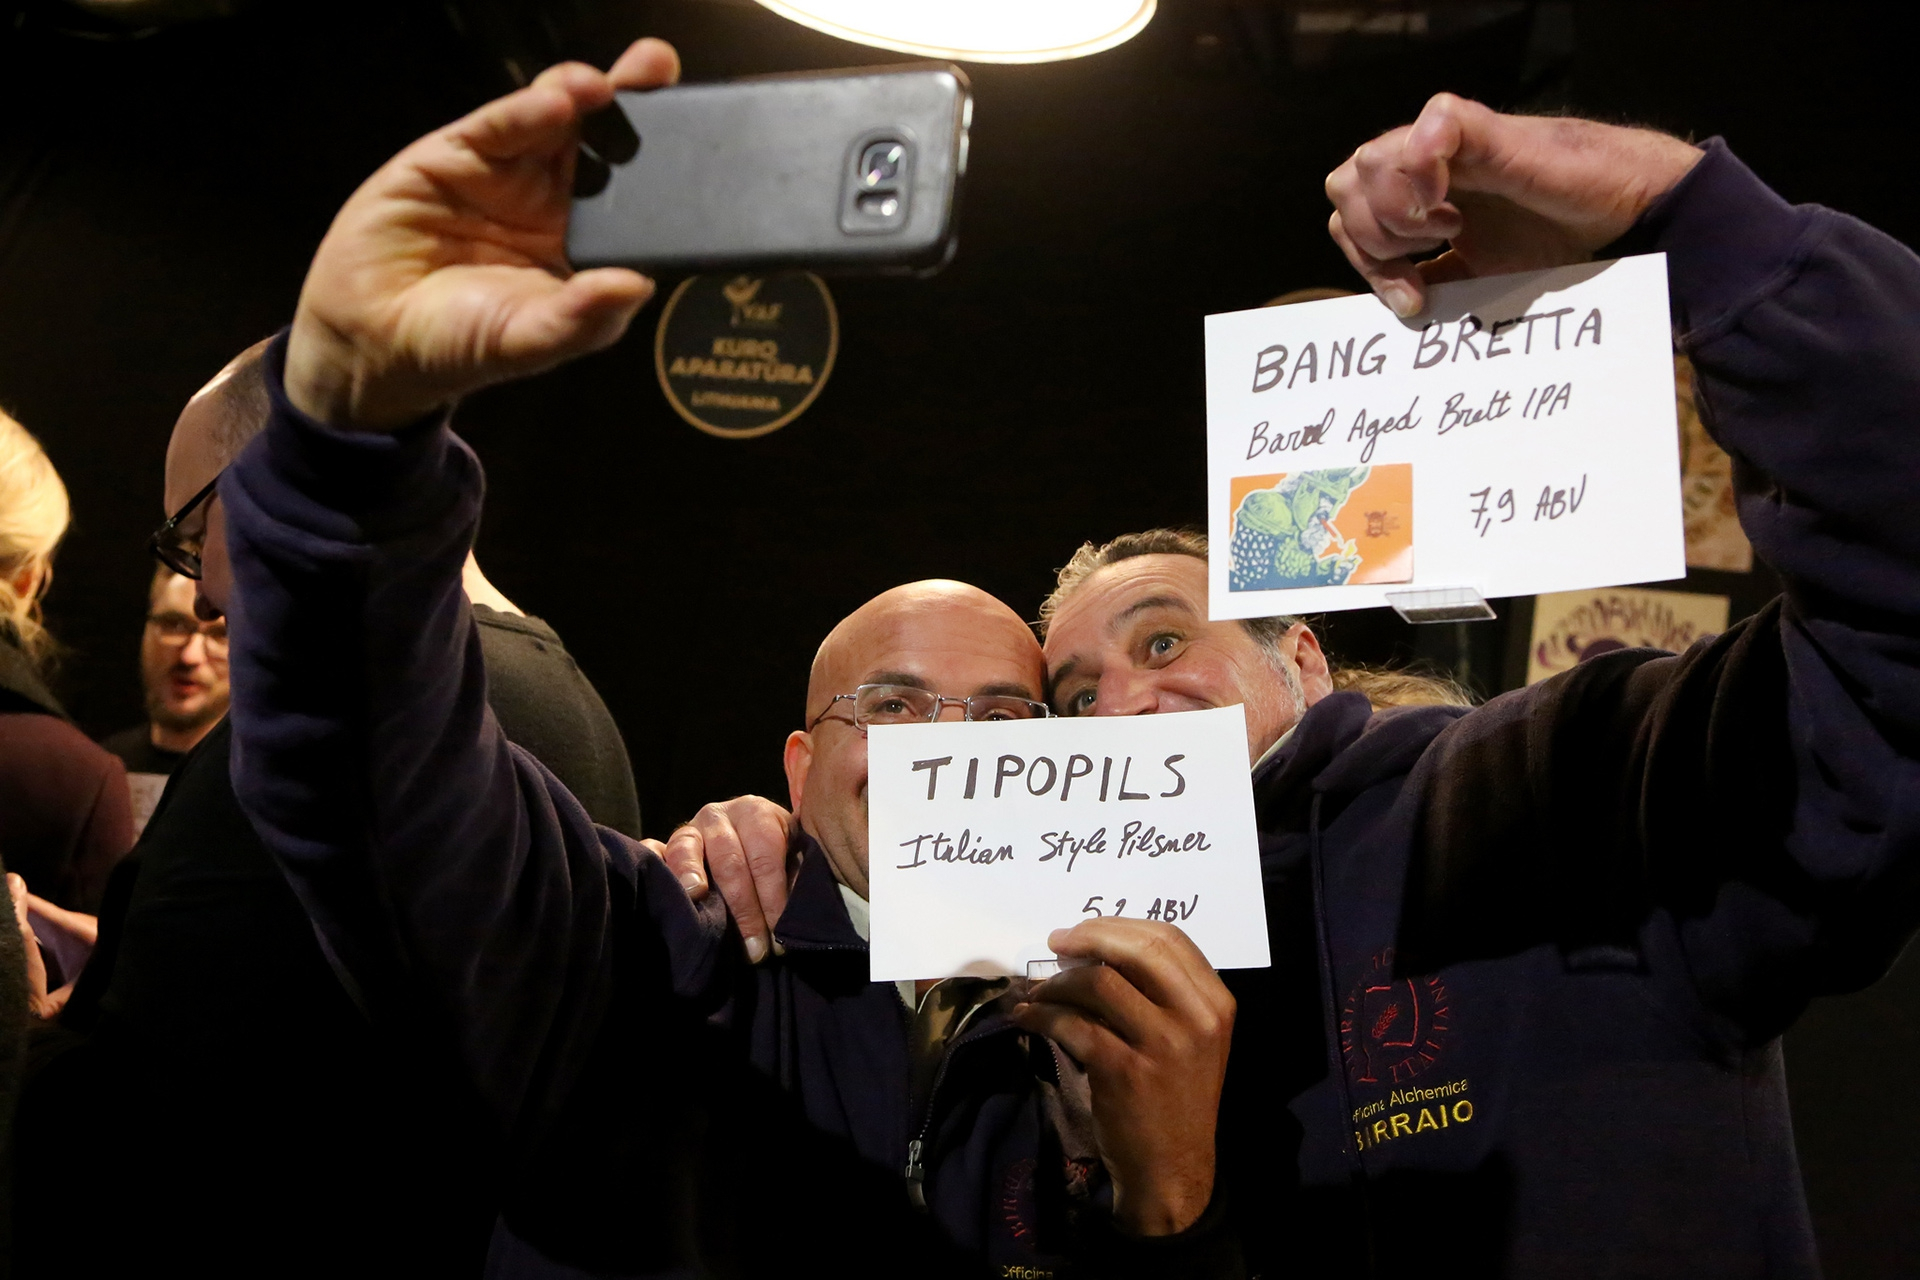 KURO
APARATŪRA
LITHUANIA
BANG BRETTA
Barrel Aged Brett IPA
7,9 ABV
TIPOPILS
Italian Style Pilsner
ABV
ITALIANO
Officina Alchemica
BIRRAIO
Officina